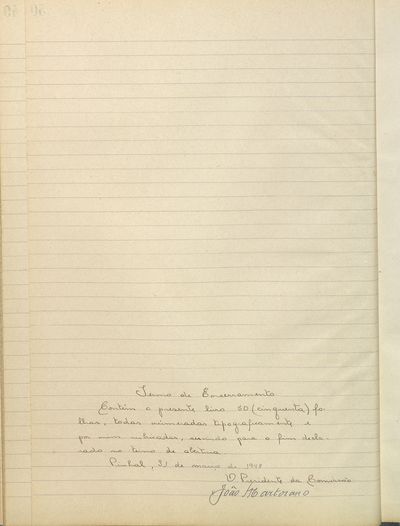 Termo de Encerramento
Contém o presente livro 50 (cinquenta) fo-
lhas, todas numeradas tipograficamente e
por mim rubricadas, servindo para o fim decla-
rado no termo de abertura.
Pinhal, 31 de março de
O Presidente da Comissão
João Martorano